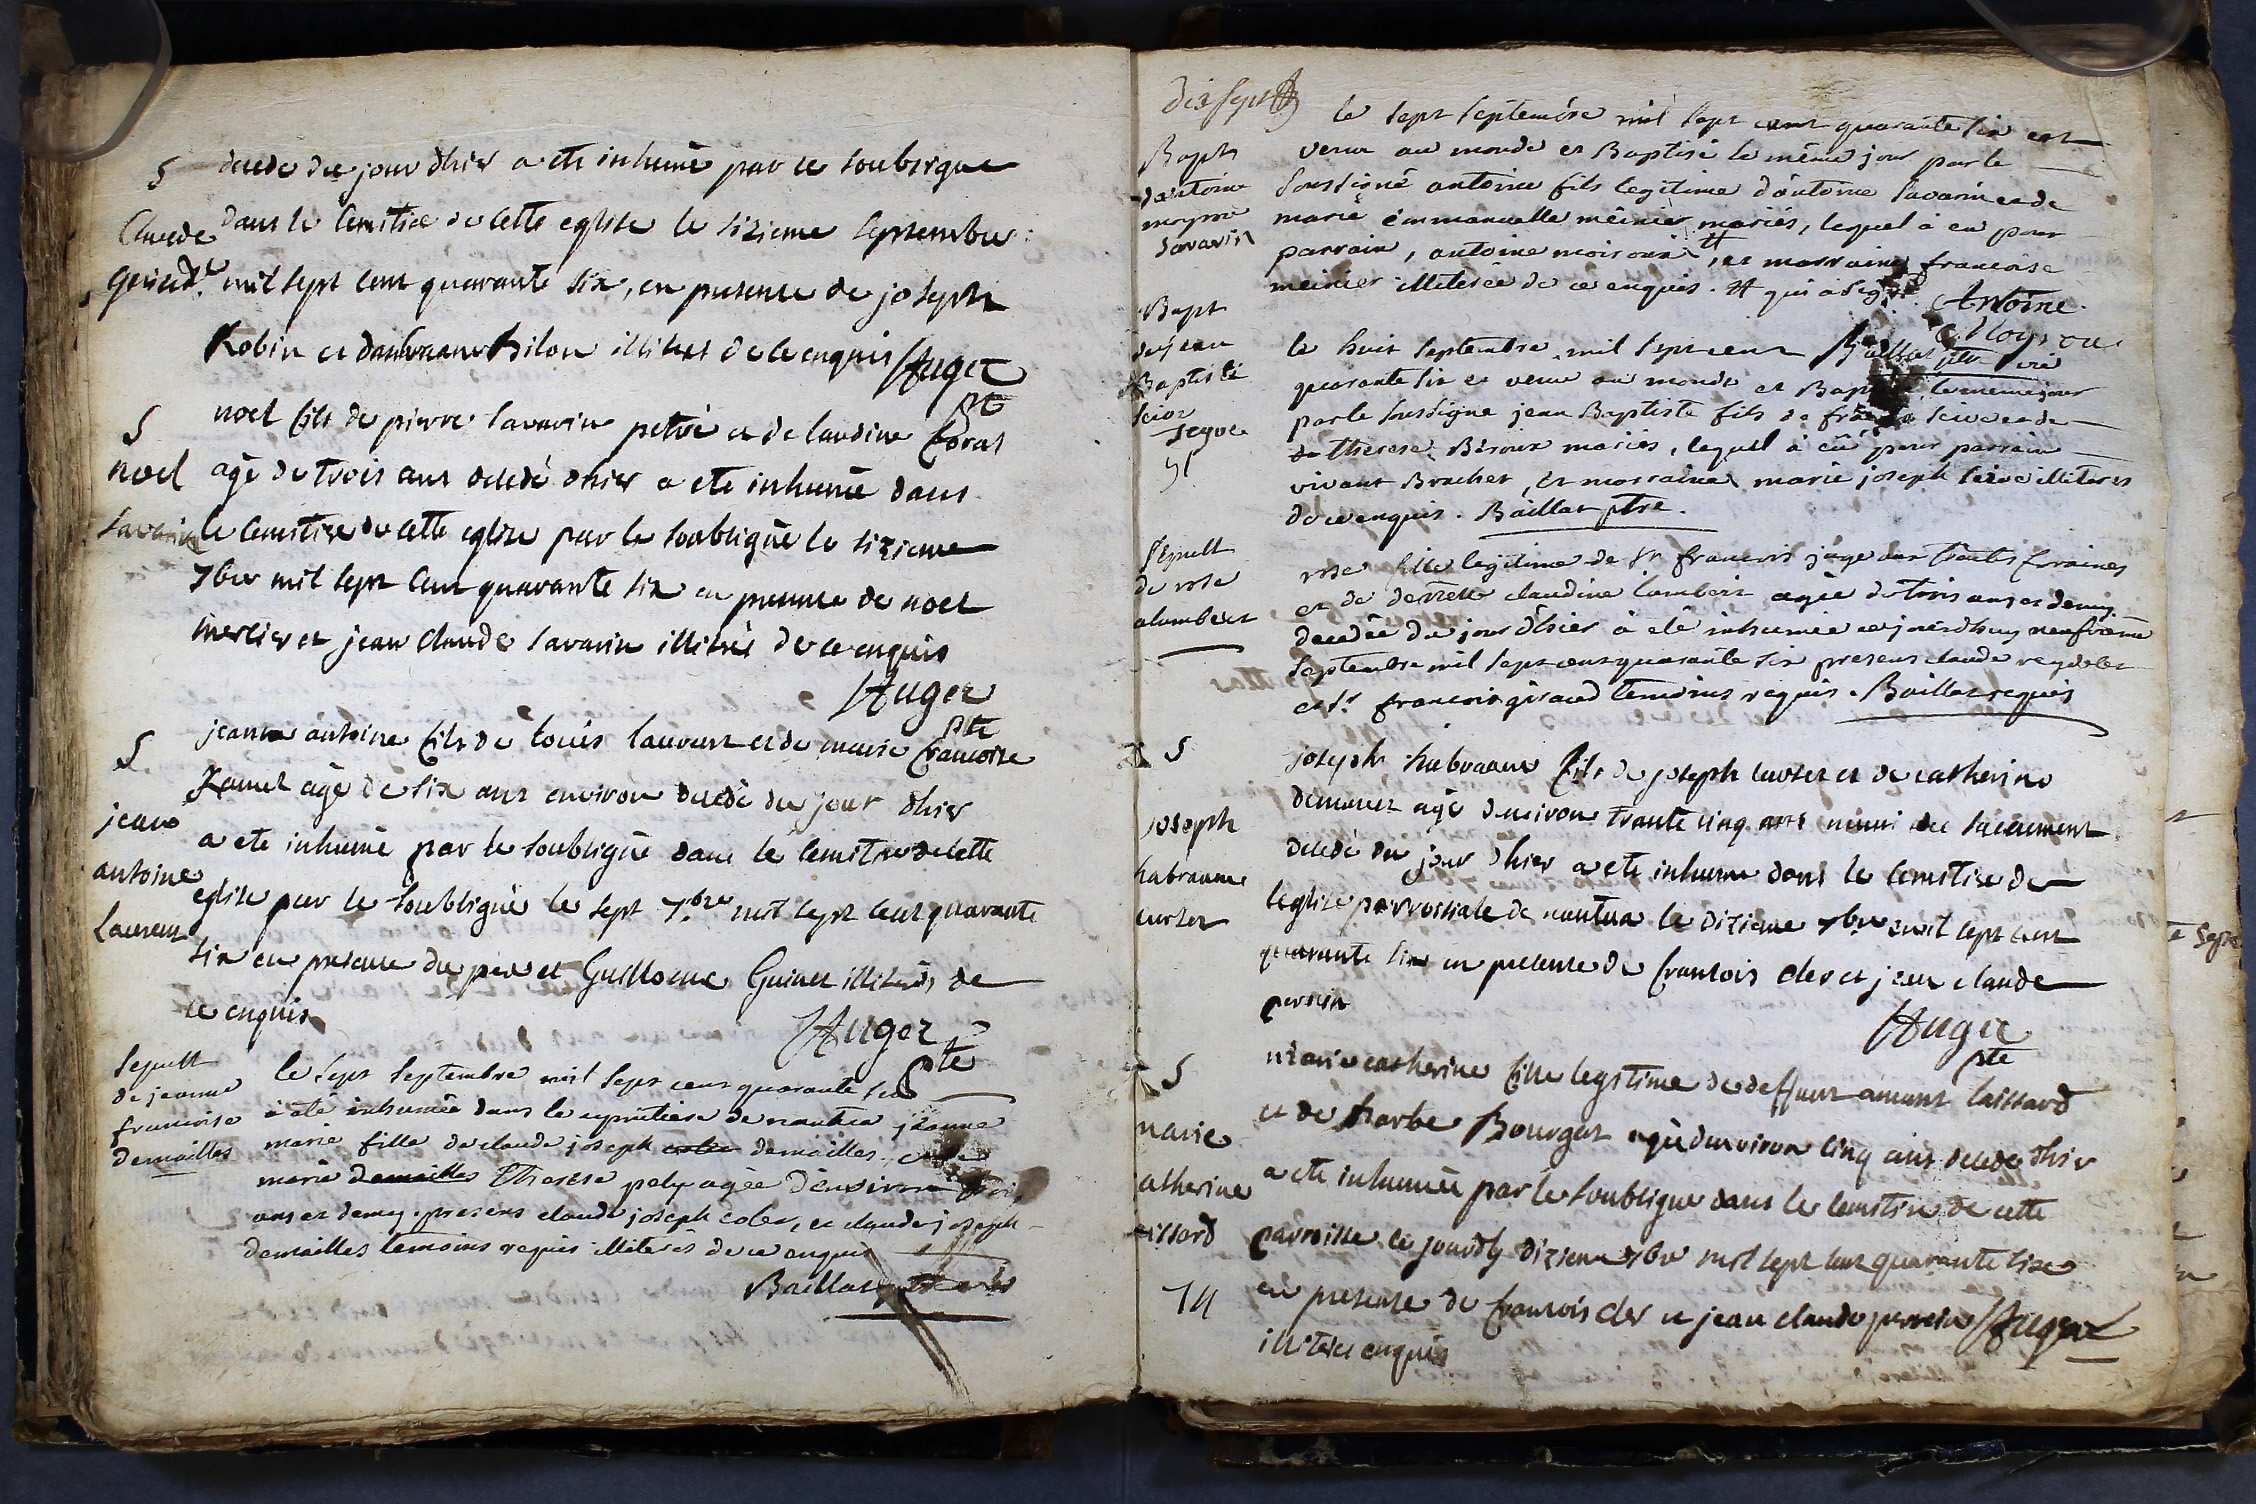 S
Claude
Girard
decede du jour dhier a ete inhumé par le soubsigne
dans le Cemitiere de cette eglise le sizieme septembre
mil sept cent quarante six, en presence de joseph
Robin et illitres de ce enquis Auger
ptre
S
noel
Savarin
noel fils de pierre savarin petré et de claudine Coras
agé de trois ans decedé dhier a ete inhumé dans
le Cemitire de cette eglise par le soubsigné le sizieme
7bre mil sept cent quarante six en presence de noel
mercier et jean claude savarin illitrés de ce enquis
Auger
ptre
S
jean
antoine
Laurent
jean antoine fils de louis laurent et de marie francoise
Jamet agé de six ans environ decedé du jour dhier
a ete inhumé par le soubsigné dans le Cemitire de cette
eglise par le soubsigné le sept 7.bre mil sept cent quarante
six en presence du pere et Guillaume Guinet illitérés de
ce enquis
Auger
ptre
sepult
de jeanne
francoise
demailles
le sept septembre mil sept cens quarante six
a été inhumée dans le cymitiere de nantua jeanne
marie fille de claude joseph demailles, et de
marie demailles Therese pely agée d'environ trois
ans et demy. presens claude joseph coler, et claude joseph
demailles temoins requis illiterés de ce enquis
Baillat
dix sept
Bapt
d'antoine
moyrou
Savarin
le sept septembre mil sept cent quarante six est
venu au monde et Baptisé le même jour par le
soussigné antoine fils legitime d'antoine savarin et de
marie emmanuelle meinier mariés, lequel à eu pour
parrain, antoine moiroux, et marraine francoise
meinier illiterée de ce enquis. qui a signé
Antoine
Moyrou
Baillat ptre vic
Bapt
de jean
Baptiste
le huit septembre mil sept cent
quarante six est venu au monde et Baptisé le meme jour
par le soussigne jean Baptiste fils de francois et de
de therese Beroux mariés, lequel à eû pour parrain
vivant Brachet, et marraine marie joseph illiteres
de ce enquis. Baillat ptre.
Sepult
de rose
alumbert
rose fille legitime de Sr francois juge aux traites foraines
et de demelle claudine lambert agée de trois ans et demy
decedée du jour d'hier à été inhumée ce jourdhuy neufvieme
septembre mil sept cent quarante six presens claude reydelet
et sr francois girard temoins requis. Baillat requis
S
joseph
habraame
curtet
joseph habraame fils de joseph curtet et de catherine
demanez agé denviron trante cinq ans muni des sacrement
decedé du jour dhier a ete inhume dans le Cemitire de
leglise parrossiale de nantua le dizieme 7bre mil sept cent
quarante six en presence de francois cler et jean claude
perrin
Auger
ptre
S
marie
catherine
laissard
marie catherine fille legitime de deffunt amant laissard
et de barbe Bourgat agée denviron cinq ans decedé dhier
a ete inhumée par le soubsigne dans le Cemitire de cette
parroisse le jourdhy dizieme 7bre mil sept cent quarante six
en presence de francois cler et jean claude perrin Auger
illiteres enquis